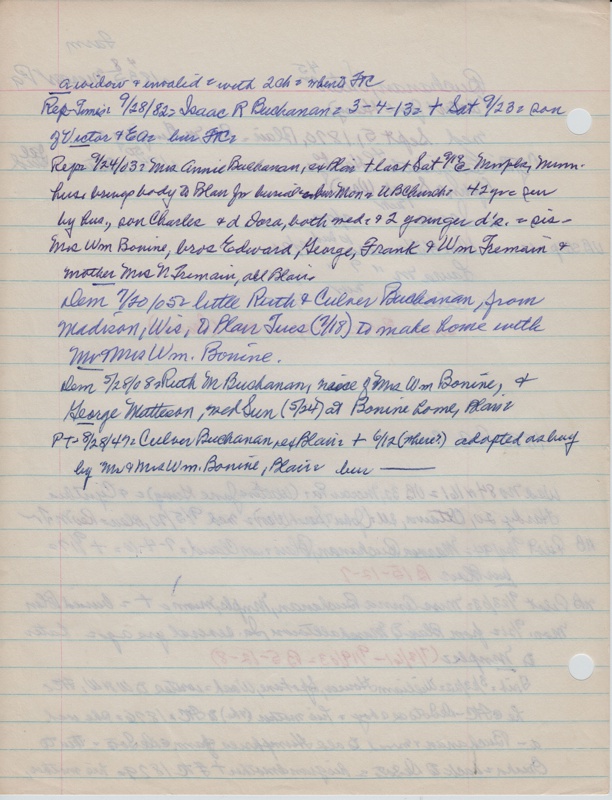 a widow & invalid = with 2 ch = where? FtC
Rep-Times 9/28/82 = Isaac R Buchanan = 3-4-13 = + Sat 9/23 = son
of Victor & Ea = bur FtC =
Rep = 9/24/03 = Mrs Annie Buchanan, ex Blair + last Sat 9/19 Minpls, Minn.
hus. brings body to Blair for burial = bur Mon = UBChurch = 42 yrs = sur
by hus., son Charles & d Dora, both wed. & 2 younger d's. = sis -
Mrs Wm Bonine, bros Edward, George, Frank & Wm Tremain &
mother Mrs N. Tremain, all Blair.
Dem 7/20/05 = little Ruth & Culver Buchanan, from
Madison, Wis, to Blair Tues (7/18) to make home with
Mr & Mrs Wm. Bonine.
Dem 5/28/08 = Ruth M Buchanan, niece of Mrs Wm Bonine, &
George Matteson, wed Sun (5/24) at Bonine home, Blair =
PT - 8/28/47 = Culver Buchanan, ex Blair = + 6/12 (where?) adopted as boy
by Mr & Mrs Wm. Bonine, Blair = bur ———